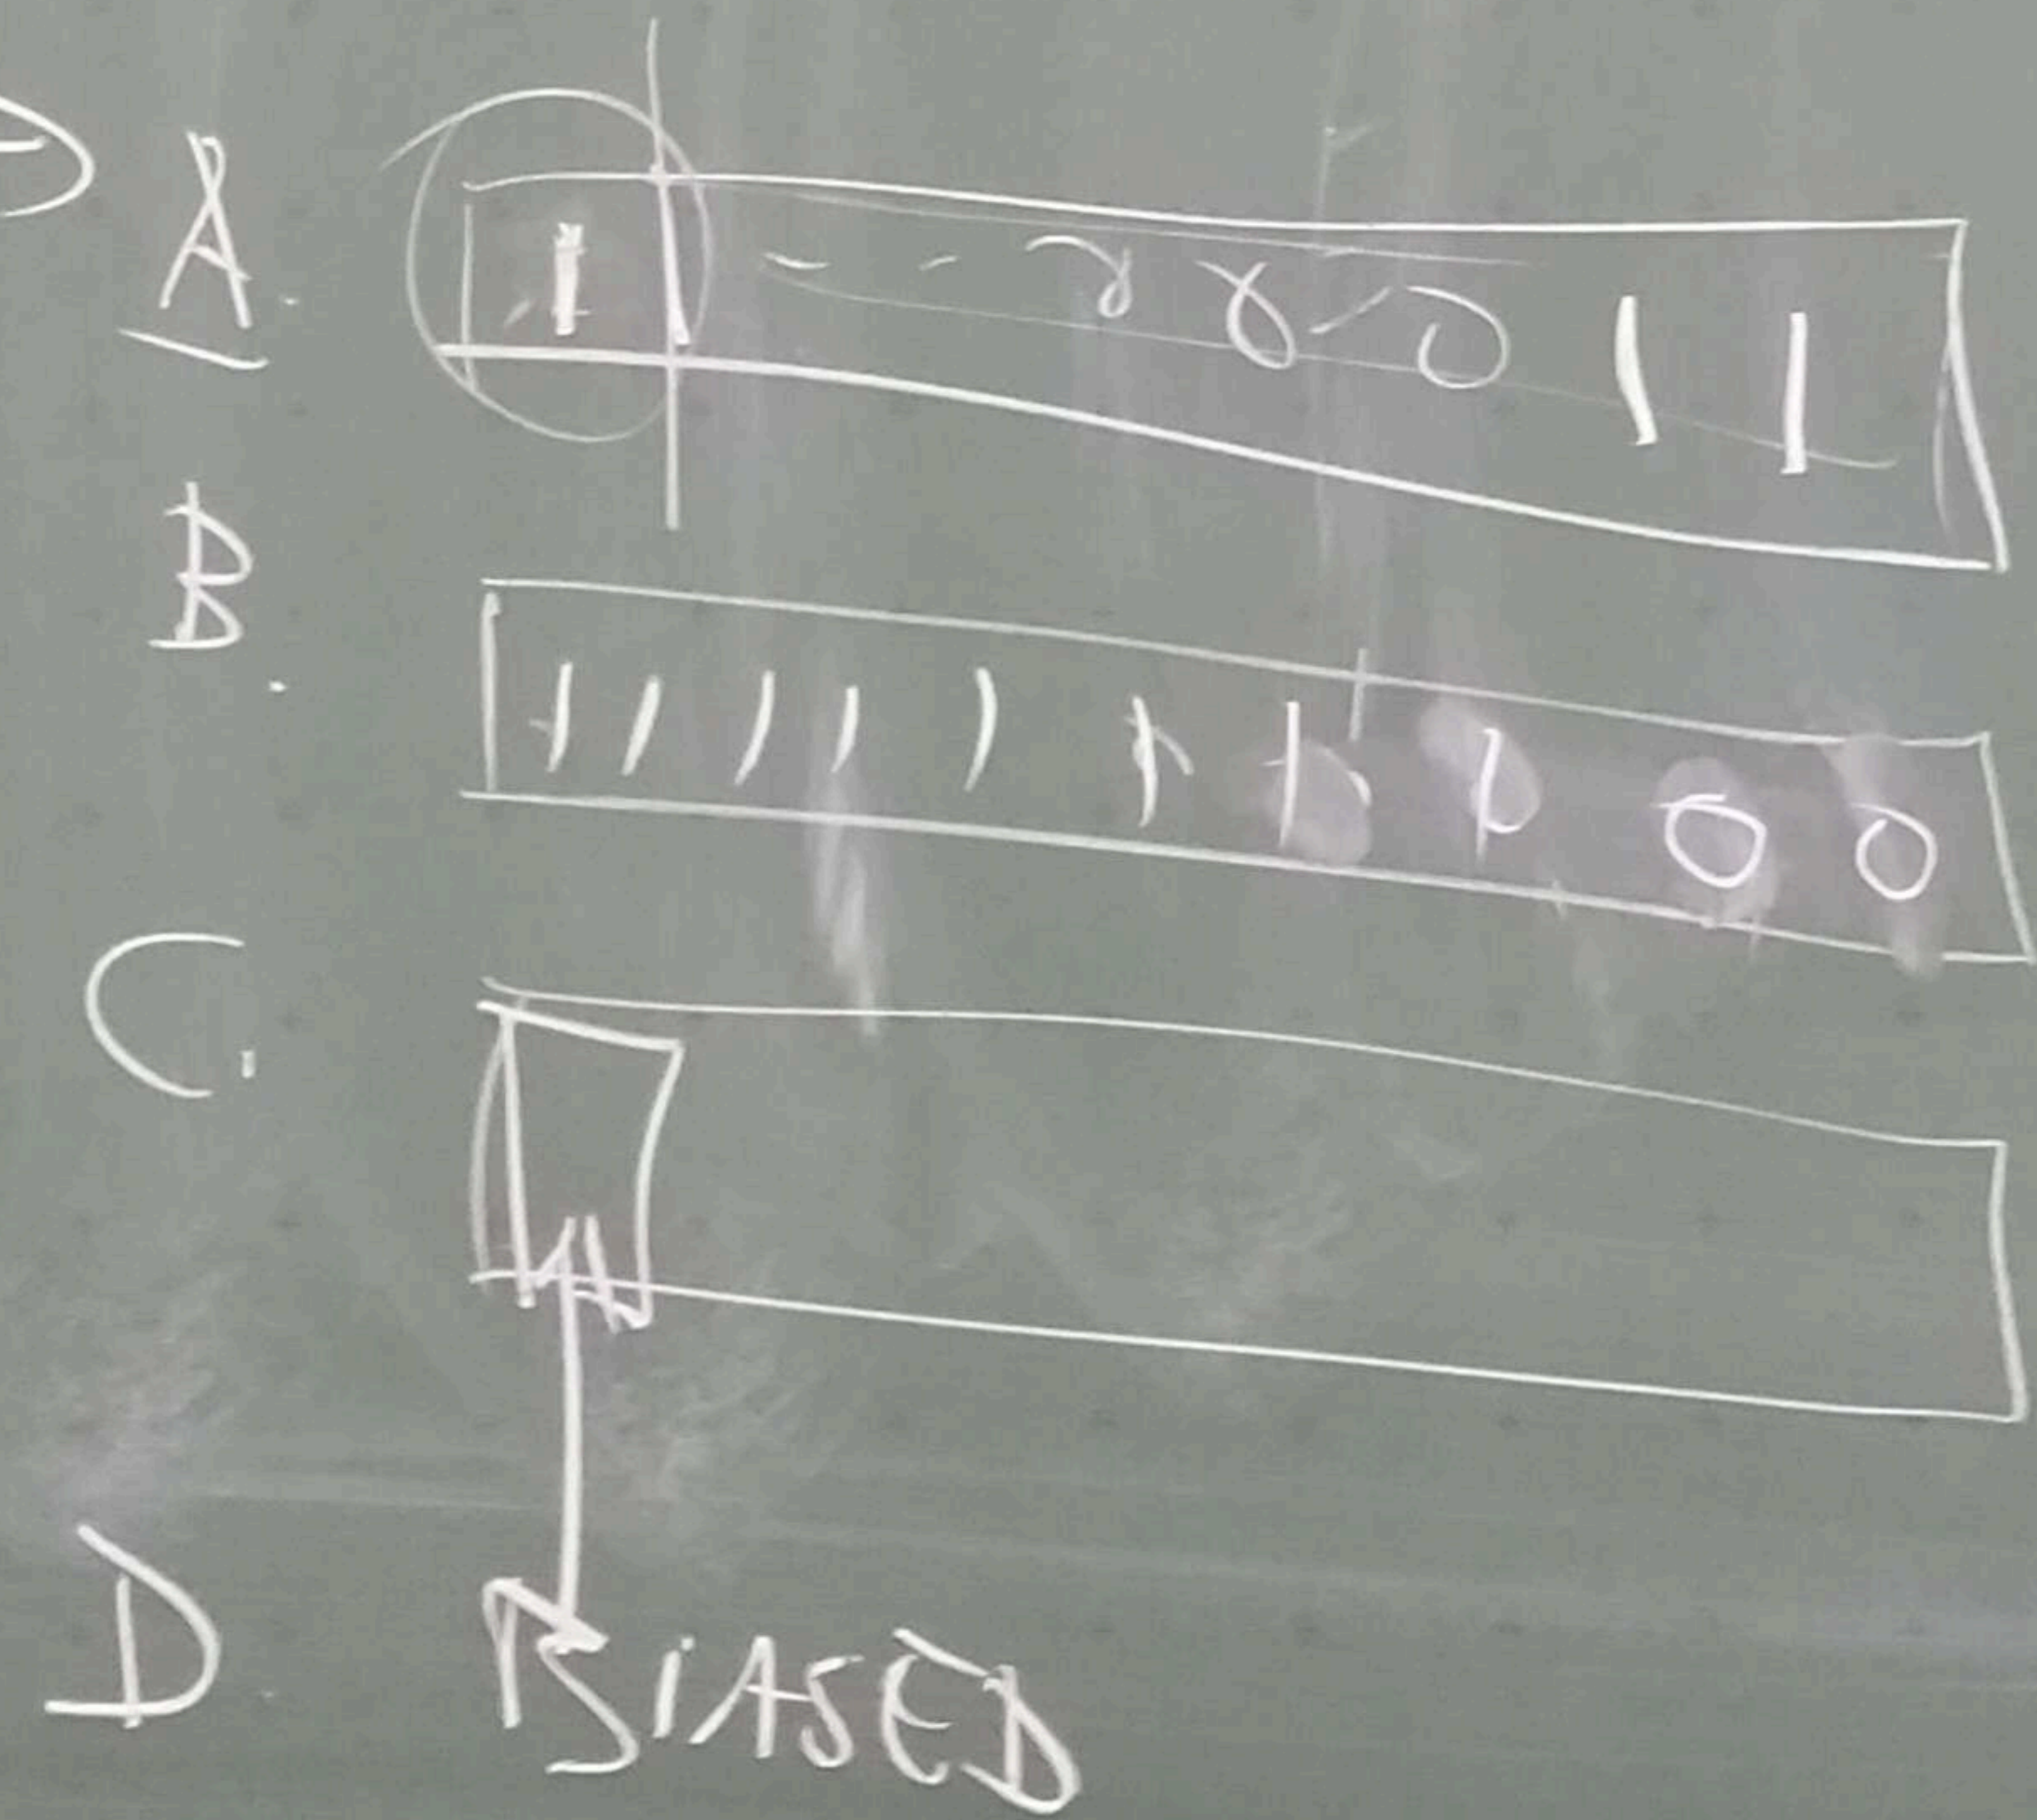 A. 1 - - 0 0 0 1 1
B. 1 1 1 1 1 1 1 1 0 0
C.
D. BIASED